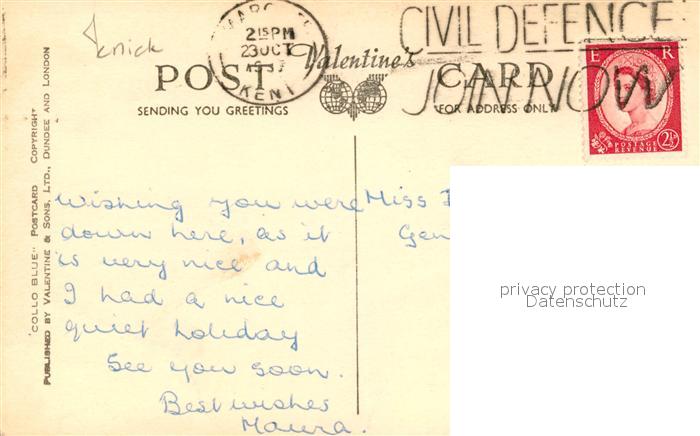 MARGATE
2 15 PM
23 OCT
KENT
CIVIL DEFENCE
JOIN NOW
POST Valentine's CARD
SENDING YOU GREETINGS
FOR ADDRESS ONLY
E R
POSTAGE
REVENUE
2½
"COLLO BLUE" POSTCARD COPYRIGHT
PUBLISHED BY VALENTINE & SONS, LTD., DUNDEE AND LONDON
Wishing you were
down here, as it
is very nice and
I had a nice
quiet holiday
See you soon.
Best wishes
Maura.
Miss
Gen
privacy protection
Datenschutz